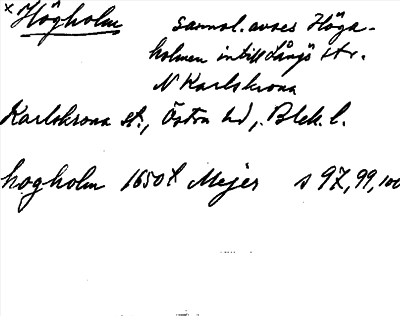 x Högholm sannol. avses Höga-
holmen intill Långö str.
N Karlskrona
Karlskrona st., Östra hd, Blek. l.
hogholm 1650t Mejer s 97, 99, 100